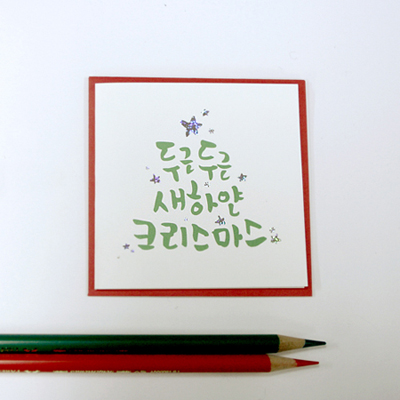 두근두근
새하얀
크리스마스